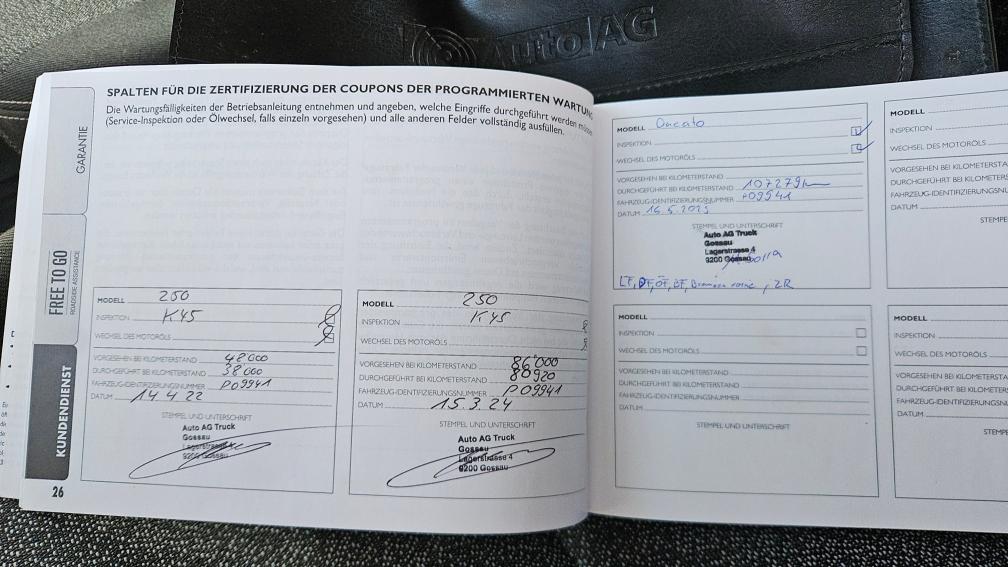 Auto AG
SPALTEN FÜR DIE ZERTIFIZIERUNG DER COUPONS DER PROGRAMMIERTEN WARTUNG
Die Wartungsfälligkeiten der Betriebsanleitung entnehmen und angeben, welche Eingriffe durchgeführt werden
(Service-Inspektion oder Ölwechsel, falls einzeln vorgesehen) und alle anderen Felder vollständig ausfüllen.
GARANTIE
FREE TO GO
ROADSIDE ASSISTANCE
KUNDENDIENST
MODELL 250
INSPEKTION K45
WECHSEL DES MOTORÖLS
VORGESEHEN BEI KILOMETERSTAND 48000
DURCHGEFÜHRT BEI KILOMETERSTAND 38000
FAHRZEUG-IDENTIFIZIERUNGSNUMMER P09941
DATUM 14.4.22
STEMPEL UND UNTERSCHRIFT
Auto AG Truck
Gossau
Lagerstrasse
9200 Gossau
26
MODELL 250
INSPEKTION K45
WECHSEL DES MOTORÖLS
VORGESEHEN BEI KILOMETERSTAND 86000
DURCHGEFÜHRT BEI KILOMETERSTAND 80920
FAHRZEUG-IDENTIFIZIERUNGSNUMMER P09941
DATUM 15.3.24
STEMPEL UND UNTERSCHRIFT
Auto AG Truck
Gossau
Lagerstrasse 4
9200 Gossau
MODELL Ducato
INSPEKTION
WECHSEL DES MOTORÖLS
VORGESEHEN BEI KILOMETERSTAND
DURCHGEFÜHRT BEI KILOMETERSTAND 107279
FAHRZEUG-IDENTIFIZIERUNGSNUMMER P09941
DATUM 16.5.2025
STEMPEL UND UNTERSCHRIFT
Auto AG Truck
Gossau
Lagerstrasse 4
9200 Gossau
LF, DF, ÖF, BF, Bremsen vorne, ZR
MODELL
INSPEKTION
WECHSEL DES MOTORÖLS
VORGESEHEN BEI KILOMETERSTAND
DURCHGEFÜHRT BEI KILOMETERSTAND
FAHRZEUG-IDENTIFIZIERUNGSNUMMER
DATUM
STEMPEL UND UNTERSCHRIFT
MODELL
INSPEKTION
WECHSEL DES MOTORÖLS
VORGESEHEN BEI KILOMETERS
DURCHGEFÜHRT BEI KILOMETERS
FAHRZEUG-IDENTIFIZIERUNGSNU
DATUM
STEMPE
MODELL
INSPEKTION
WECHSEL DES MOTORÖLS
VORGESEHEN BEI KILOMETERS
DURCHGEFÜHRT BEI KILOM
FAHRZEUG-IDENTIFIZIERU
DATUM
STEMP